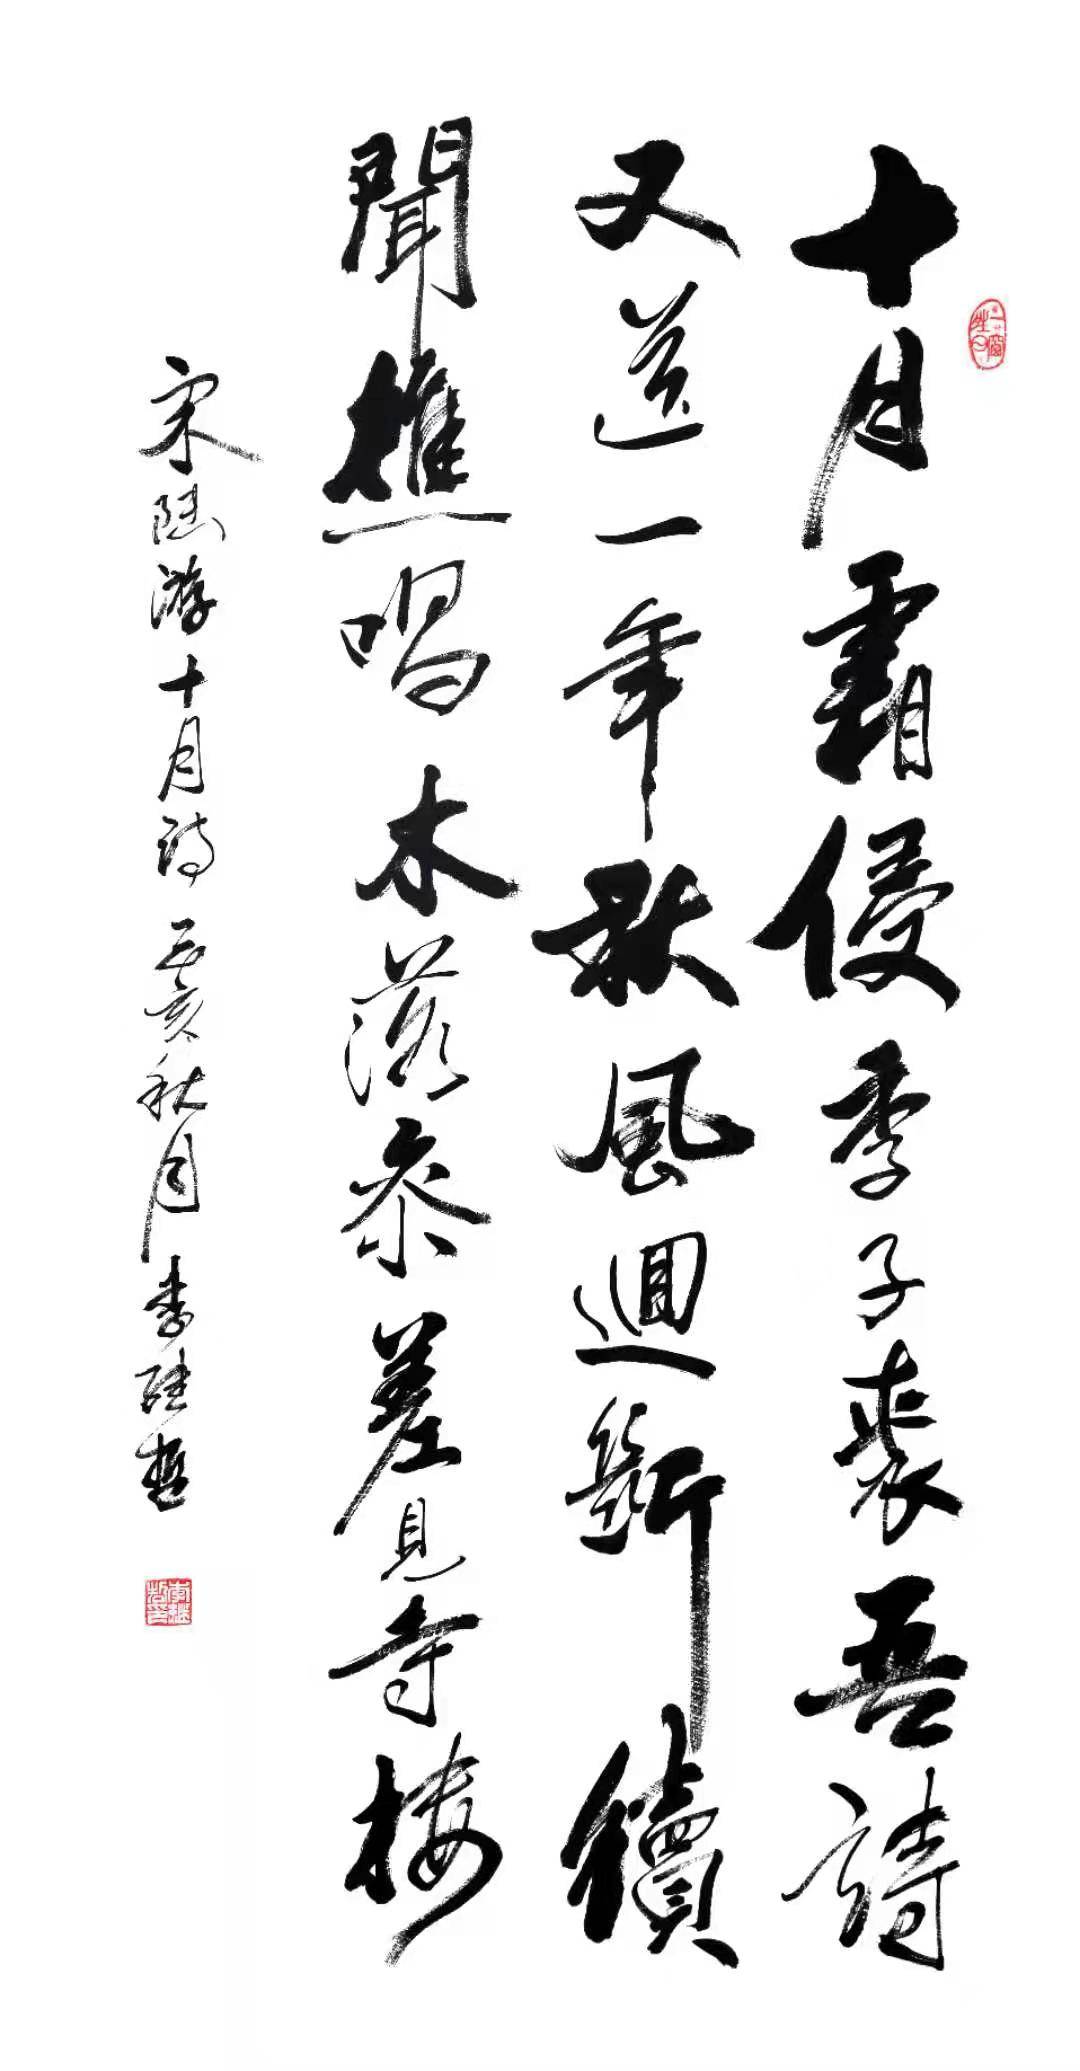 十月霜侵季子裘吾詩
又送一年秋風迴斷續
聞樵唱木落參差見寺樓
宋陸游十月詩 己亥秋月 李